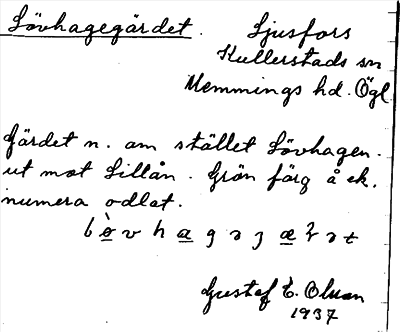 Lövhagegärdet. Ljusfors
Kullerstads sn
Memmings hd. Ögl
Gärdet n. om stället Lövhagen.
ut mot Lillån. Grön färg å ek.
numera odlat.
Gustaf E. Olsson
1937